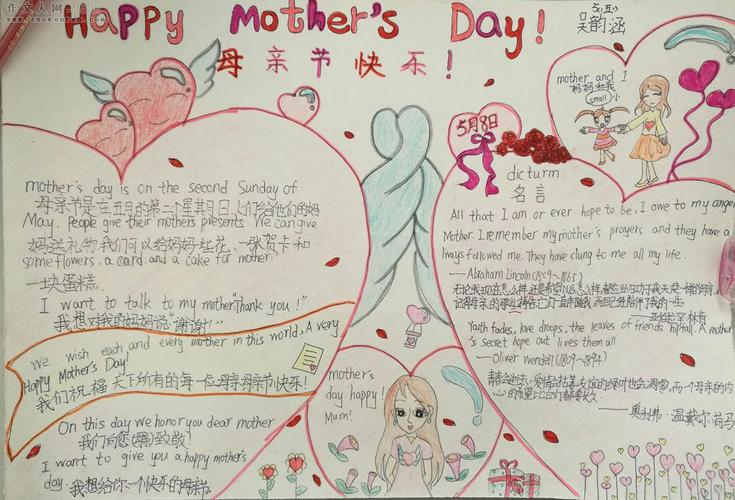 作文人网
Happy Mother's Day!
母亲节快乐!
五(五)
吴韵涵
mother and I
妈妈和我
small 小
5月8日
mother's day is on the second Sunday of
母亲节是在五月的第二个星期日,人们给他们的妈
May. People give their mothers presents. We can give
妈送礼物,我们可以给妈妈红花、一张贺卡和
some flowers, a card and a cake for mother.
一块蛋糕.
I want to talk to my mother "Thank you!"
我想对我的妈妈说"谢谢!"
We wish each and every mother in this world, A very
Happy Mother's Day!
我们祝福天下所有的每一位母亲母亲节快乐!
On this day we honor you dear mother
我们向您致敬!
I want to give you a happy mother's
day. 我想给你一个快乐的母亲节
mother's
day happy!
Mum!
dic turm
名言
All that I am or ever hope to be, I owe to my angel
Mother. I remember my mother's prayers and they have a
lways followed me. They have clung to me all my life.
——Abraham Lincoln (1809~1865)
无论我现在怎么样,还是希望以后会怎么样,都应当归功于我天使一样的母亲.
——亚伯拉罕·林肯
Youth fades, love droops, the leaves of friends hip fall. A mother
's secret hope out lives them all
——Oliver wendell (1809~1894)
——奥利弗·温戴尔·荷马